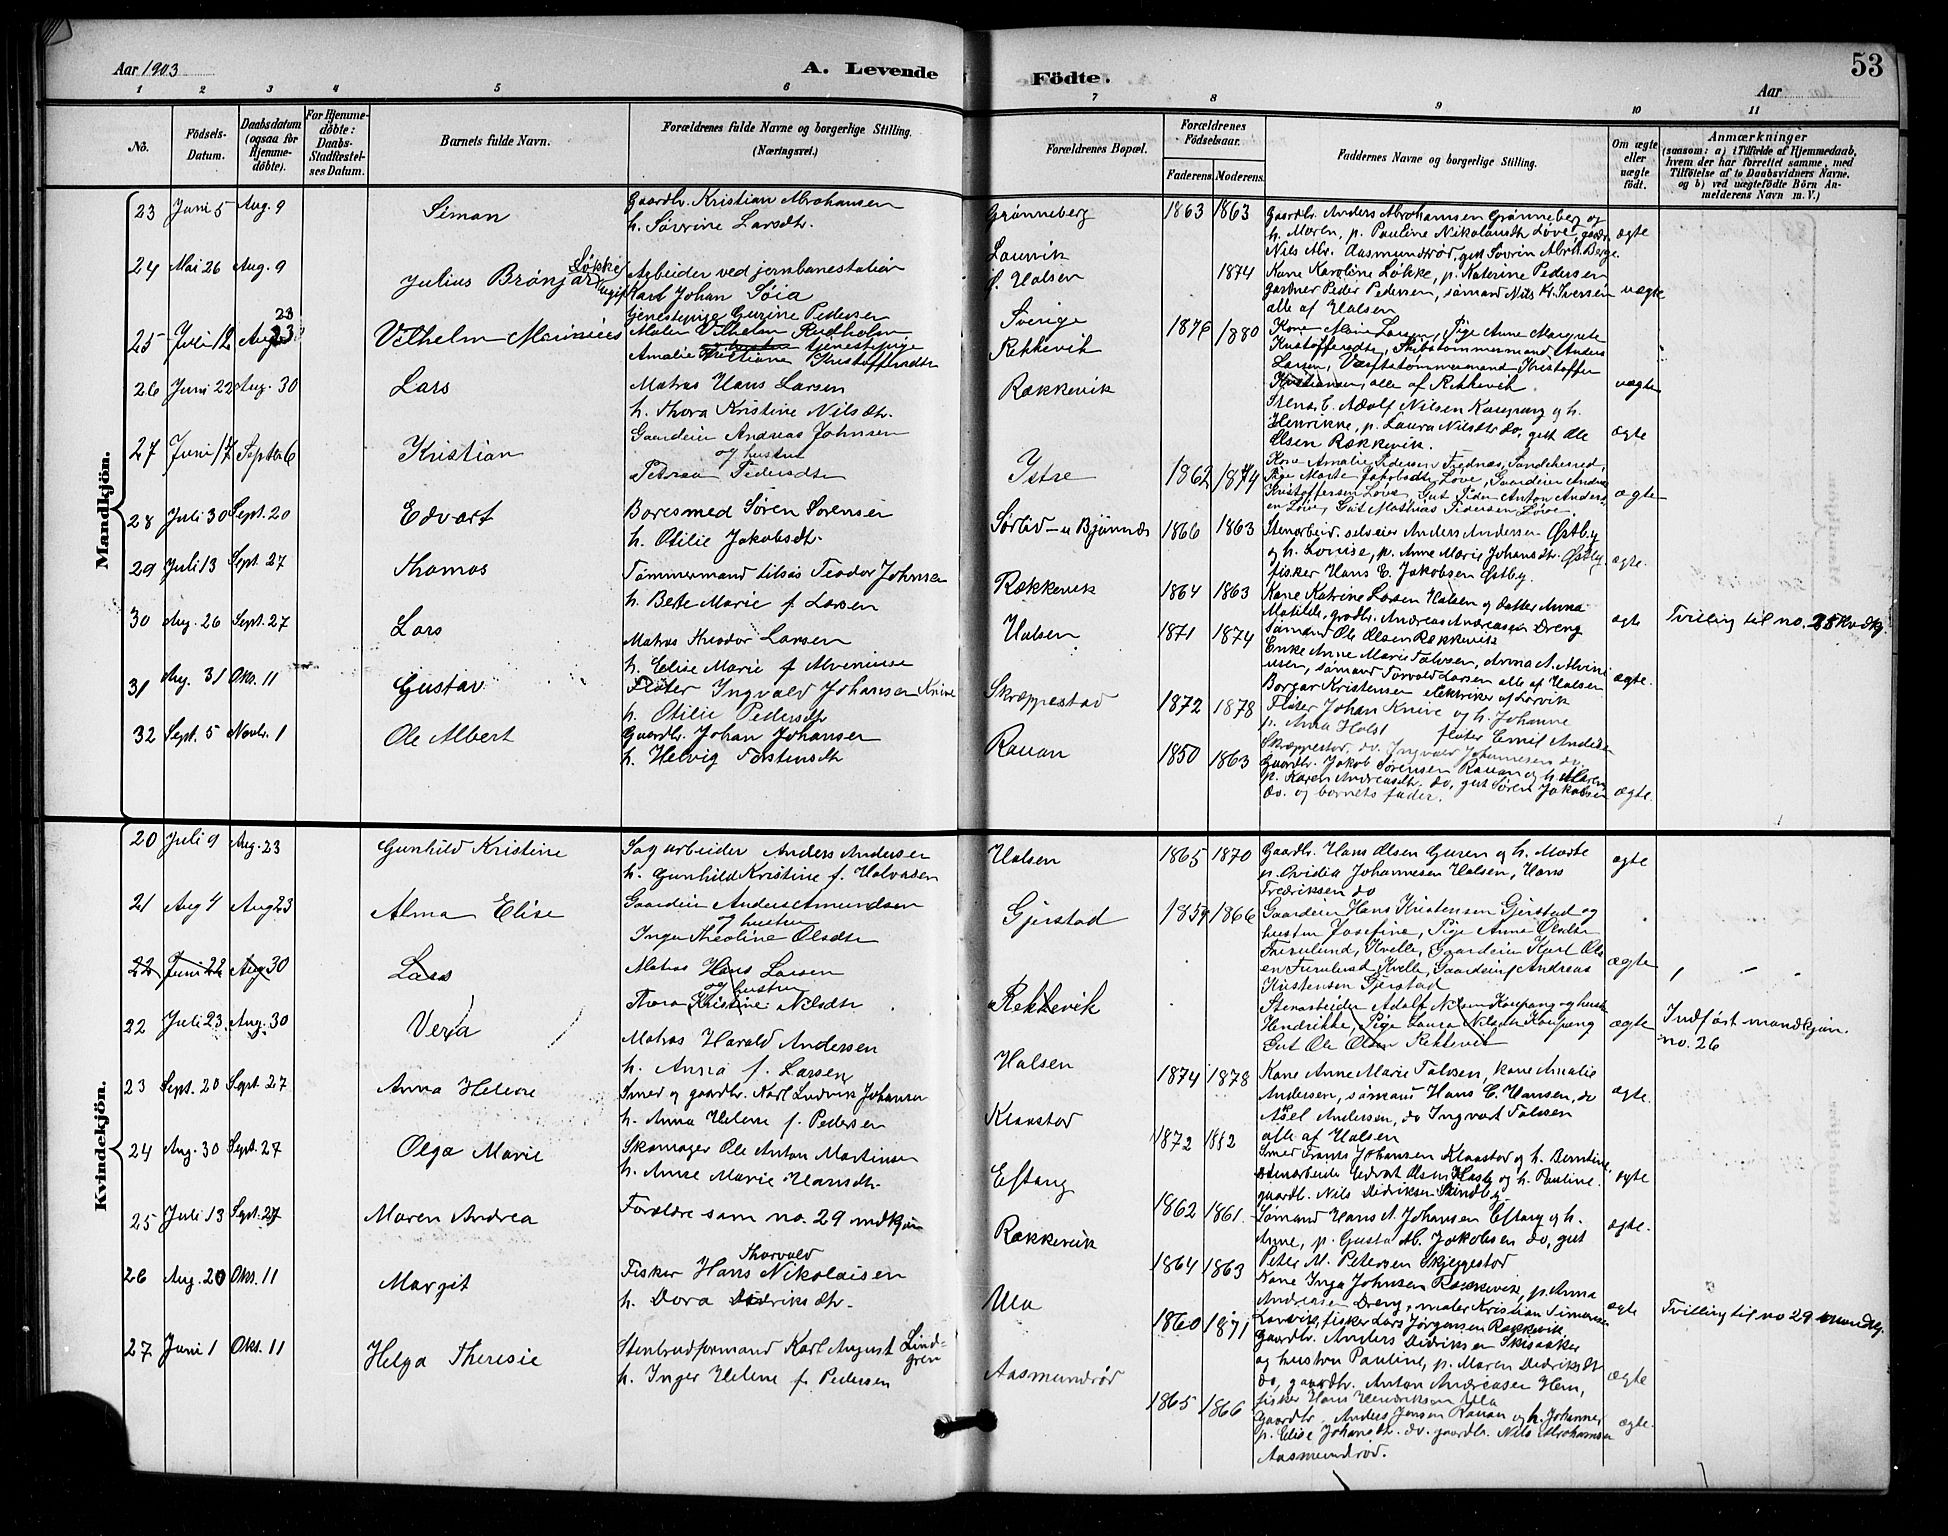 Aar 1903
A. Levende
Födte.
53
Aar
1 2 3 4 5 6 7 8 9 10 11
No.
Födsels-Datum.
Daabsdatum (ogsaa for Hjemme-döbte).
For Hjemme-döbte: Daabs-Stadfæstelses Datum.
Barnets fulde Navn.
Forældrenes fulde Navne og borgerlige Stilling. (Næringsvei.)
Forældrenes Bopæl.
Forældrenes Födselsaar.
Faderens. Moderens.
Faddernes Navne og borgerlige Stilling.
Om ægte eller uægte födt.
Anmærkninger
(saasom: a) i Tilfælde af Hjemmedaab,
hvem der har forrettet samme, med
Tilföielse af to Daabsvidners Navne,
og b) ved uægtefödte Börn An-
melderens Navn m. V.)
Mandkjön.
23 Juni 5 Aug. 9 Simon
Gaardbr. Kristian Abrahamsen
h. Søvrine Larsdtr.
Grønneberg 1863 1863
Gaardbr. Anders Abrahamsen Grønneberg og
h. Maren, p. Pauline Nikolaisdth Løve,
Nils Abr. Aasmundrød, gut Søvrin Abrah. Berge.
ægte
24 Mai 26 Aug. 9 Julius Brønjar Løkke
Arbeider ved jernbanestation
Karl Johan Söia
Tjenestepige Gurine Pedersen
Laurvik
f. Halsen 1874
Kone Karoline Løkke, p. Katerine Pedersen
gartner Peder Pedersen, sømand Nils Kr. Iversen
alle af Halsen
uægte
25 Juli 12 Aug 23 Vilhelm Marinius
Maler Vilhelm Rudholm
og hustru tjenestepige
Amalie Kristiane Kristoffersdtr
Sverige
Rekkevik 1876 1880
Kone Marie Larsen, Pige Anne Margrete
Kristoffersdtr, Skibstømmermand Anders
Larsen, Værftstømmermand Kristoffer
Kristiansen, alle af Rekkevik.
uægte
26 Juni 22 Aug. 30 Lars
Matros Hans Larsen
h. Thora Kristine Nilsdtr.
Rækkevik
Stenarb. Adolf Nilsen Kaupang og h.
Henrikke, p. Laura Nilsdtr do, gut Ole
Olsen Rækkevik.
ægte
27 Juni 17 Septbr 6 Kristian
Gaardeier Andreas Johnsen
og hustru
Petrea Pedersdtr
Ystre 1862 1874
Kone Amalie Pedersen Frednæs, Sandeherred,
Pige Marte Jakobsdtr Løve, Gaardeier Andrea
Kristoffersen Løve, Gut Peder Anton Anders
en Løve, Gut Mathias Pedersen Løve.
ægte
28 Juli 30 Sept. 20 Edvart
Boresmed Søren Sørensen
h. Otilie Jakobsdtr.
Sørlid u Bjønnes 1866 1863
Stenarbeid. selveier Anders Andersen Østby
og h. Lovise, p. Anne Marie Johansdtr. Østby
fisker Hans C. Jakobsen Østby.
ægte.
29 Juli 13 Sept. 27 Thomas
Tømmermand Teodor Johnsen
h. Bete Marie f. Larsen
Rækkevik 1864 1863
Kone Katrine Larsen Halsen og datter Anna
Matilde, grdbr. Andreas Andreassen Dreng
Sømand Ole Olsen Rækkevik
ægte
Tvilling til no. 25 Kvdkj.
30 Aug. 26 Sept. 27 Lars
Matros Theodor Larsen
h. Elise Marie f. Alveniusse
Halsen 1871 1874
Enke Anne Marie Falvsen, Anna A. Alvini
ussen, sømand Torvald Larsen alle af Halsen
Borgar Kristensen elektriker af Larvik
ægte.
31 Aug. 31 Okt. 11 Gustav
Fløter Ingvald Johansen Knive
h. Otilie Pedersdtr
Skræppestad 1872 1878
Fløter Johan Knive og h. Johanne
p. Anna Holst fløter Emil Andersen
Skræppestad, do. Ingvald Johannesen do.
32 Sept. 5 Novbr. 1 Ole Albert
Gaardbr. Johan Johansen
h. Helvig Torstensdtr
Rauan 1850 1863
Gaardbr. Jakob Sørensen Rauan og h. Maren
p. Karen Andreasdtr. do, gut Søren Jakobsen
do. og barnets fader.
ægte.
Kvindekjön.
20 Juli 9 Aug. 23 Gunhild Kristine
Sagarbeider Anders Andersen
h. Gunhild Kristine f. Halvorsen
Halsen 1865 1870
Gaardbr. Hans Olsen Guren og h. Marte
p. Ovidia Johannesen Halsen, Hans
Fredriksen do
ægte
21 Aug 4 Aug 23 Alma Elise
Gaardeier Anders Amundsen
og hustru
Inga Theoline Olsdtr
Gjerstad 1859 1866
Gaardeier Hans Kristensen Gjerstad og
hustru Josefine, Pige Anna Olsdtr
Furulund, Kvelle, Gaardeier Karl Ols
en Furulund Kvelle, Gaardeier Andreas
Kristensen Gjerstad
ægte
22 Juni 22 Aug 30 Lars
Matros Hans Larsen
og hustru
Thora Kristine Nilsdtr
Rekkevik
Stenarbeider Adolf Nilsen Kaupang og hustr
Hendrikke, Pige Laura Nilsdtr Kaupang
Gut Ole Olsen Rekkevik
ægte
Indført mandkjøn.
no. 26
22 Juli 23. Aug. 30 Vera
Matros Harald Andersen
h. Anna f. Larsen
Halsen 1874 1878
Kone Anne Marie Falvsen, kone Amalie
Andersen, sømand Hans C. Hansen, do
Aksel Andersen, do Ingvart Falvsen
alle af Halsen
ægte.
23 Sept. 20 Sept. 27 Anna Helene
Smed og gaardbr. Karl Ludvik Johansen
h. Anna Helene f. Pedersen
Klaastad 1872 1882
Smed Frants Johansen Klaastad og h. Berntine,
stenarbeider Edvart Olsen Hasle og h. Pauline.
gaardbr. Nils Didriksen Skindby
ægte
24 Aug. 30 Sept. 27 Olga Marie
Skomager Ole Anton Martinsen
h. Anne Marie Hansdtr.
Eftang 1862 1861.
Sømand Hans A. Johansen Eftang og h.
Anne, p. Gusta M. Jakobsen do, gut
Peter M. Petersen Skjeggestad
ægte.
25 Juli 13 Sept. 27 Maren Andrea
Forældre som no. 29 mdkjøn
Rækkevik 1864 1863
Kone Inga Johnsen Rækkevik, p. Anna
Andreasen Dreng, maler Kristian Simonsen
Larvik, fisker Lars Jørgensen Rækkevik,
ægte
Tvilling til no 29 mandkj.
26 Aug. 20 Okt. 11 Margit
Fisker Hans Thorvald Nikolaisen
h. Dora Didriksdtr.
Ula 1860 1871
Gaardbr. Anders Didriksen Skisaaker
og hustru Pauline, p. Maren Didriksdtr
do, gaardbr. Anton Andreasen Hem,
fisker Hans Hendriksen Ula
ægte
27 Juni 1 Okt. 11 Helga Theresie
Stenbrudformand Karl August Lind-
gren
h. Inger Helene f. Pedersen
Aasmundrød 1865 1866
Gaardbr. Anders Jensen Rauan og h. Johanne,
p. Elise Johansdtr. do. gaardbr. Nils Abrahamsen
Aasmundrød.
ægte.